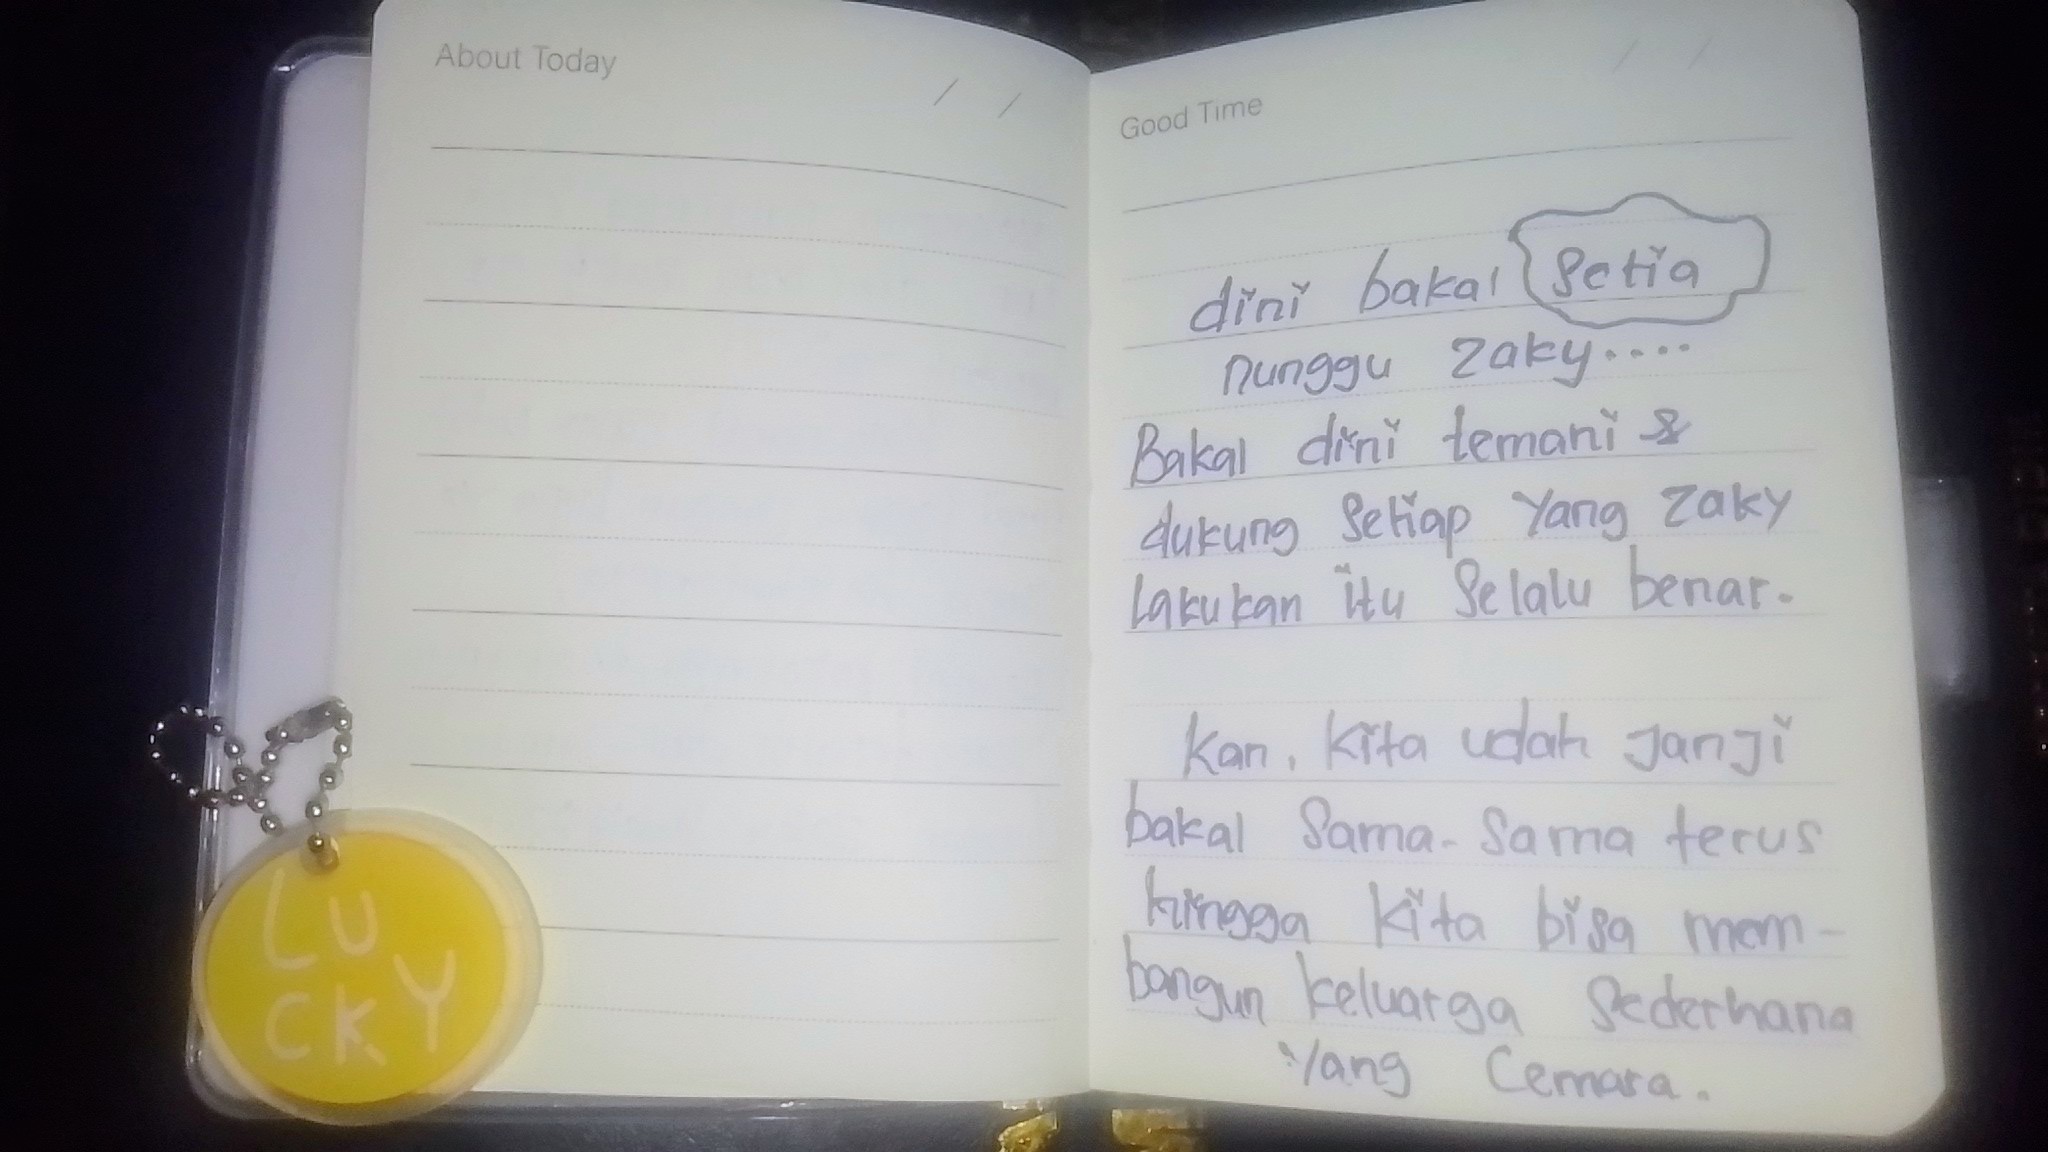 About Today
/ /
LU
CKY
Good Time
/ /
dini bakal setia
nunggu zaky....
Bakal dini temani &
dukung setiap yang zaky
lakukan itu selalu benar.
kan, kita udah janji
bakal sama-sama terus
hingga kita bisa mem-
bangun keluarga sederhana
yang cemara.